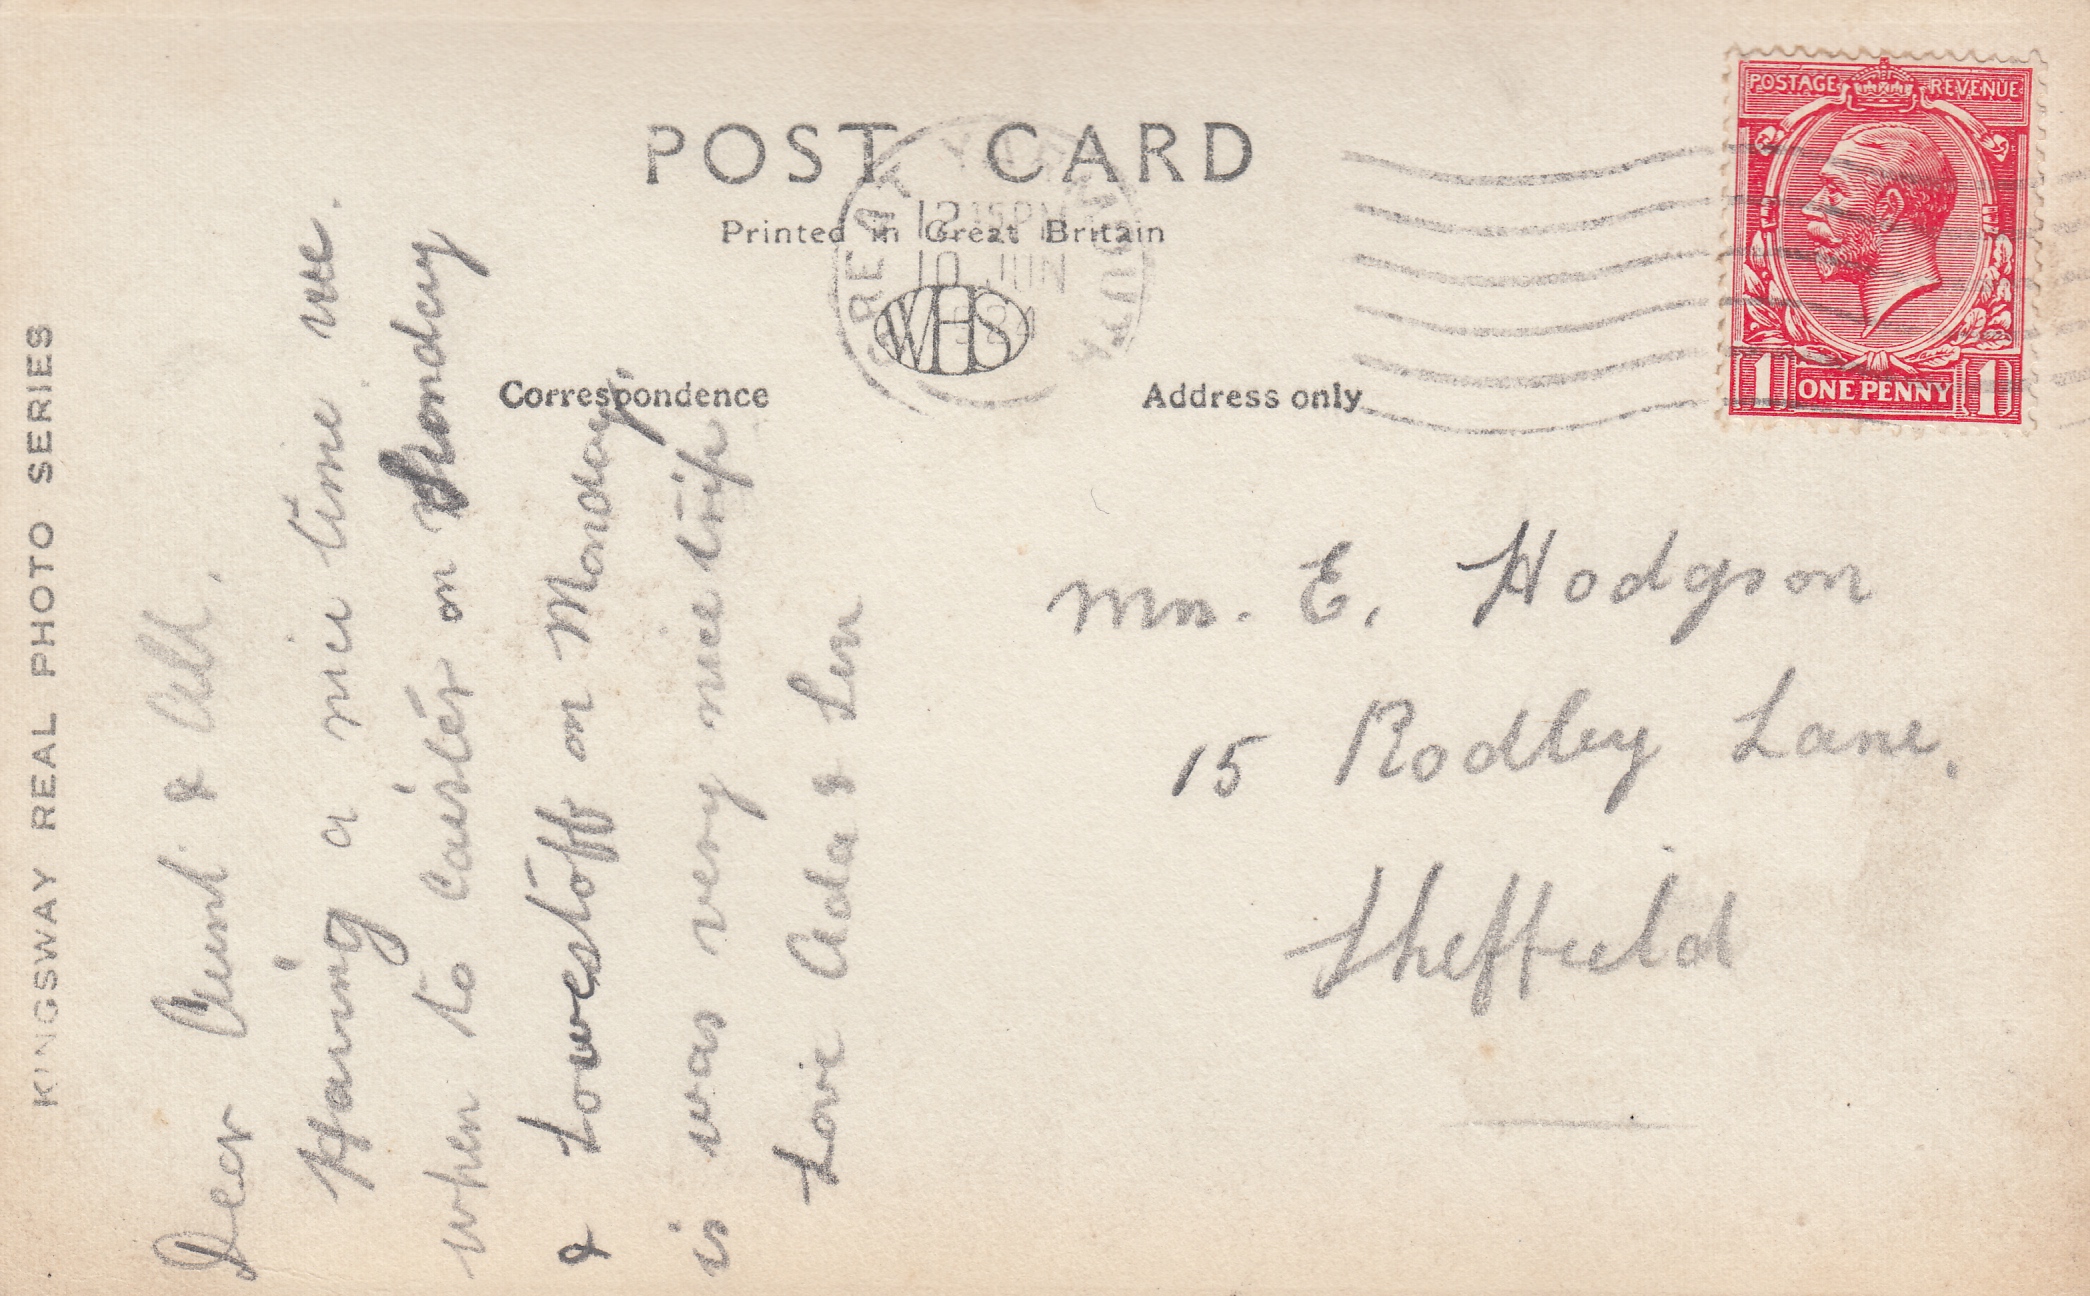 POST CARD
Printed in Great Britain
WHS
GREAT YARMOUTH
12 15 PM
10 JUN
1924
POSTAGE REVENUE
1 ONE PENNY 1
Correspondence
Address only
KINGSWAY REAL PHOTO SERIES
Dear Aunt &
Having a nice time we.
when to Caister on
& Lowestoff on Monday.
is was very nice trip
Love Ada & Len
E. Hodgson
15 Rodley Lane.
Sheffield